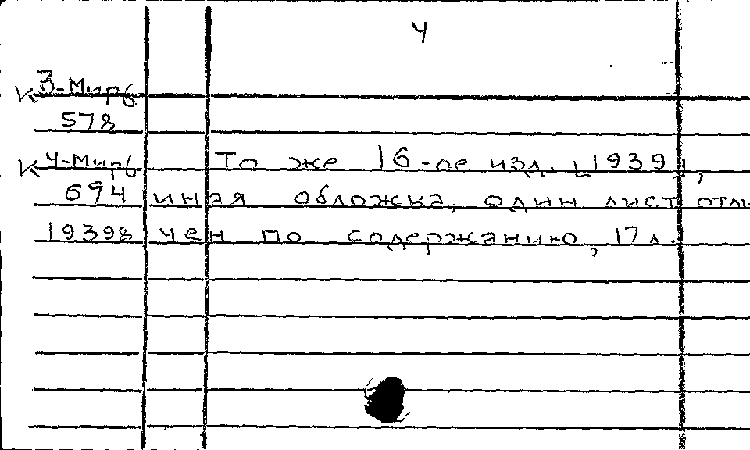 4
К 3-Мирб
578
К 4-Мирб То же 16-ое изд. [1939],
694 иная обложка, один лист отли
1939г чен по содержанию, 17 л.